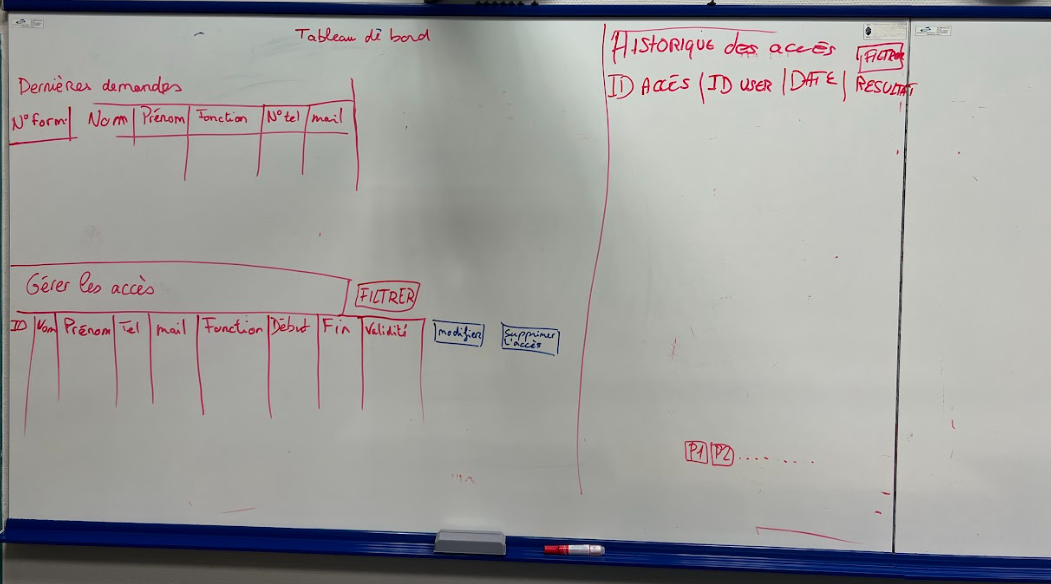 Tableau de bord
Dernières demandes
N° form. Nom Prénom Fonction N° tel mail
Gérer les accès
FILTRER
ID Nom Prénom Tel mail Function Début Fin Validité
modifier
supprimer
l'accès
HISTORIQUE des accès
FILTRER
ID ACCÈS | ID USER | DATE | RESULTAT
P1 P2 ........